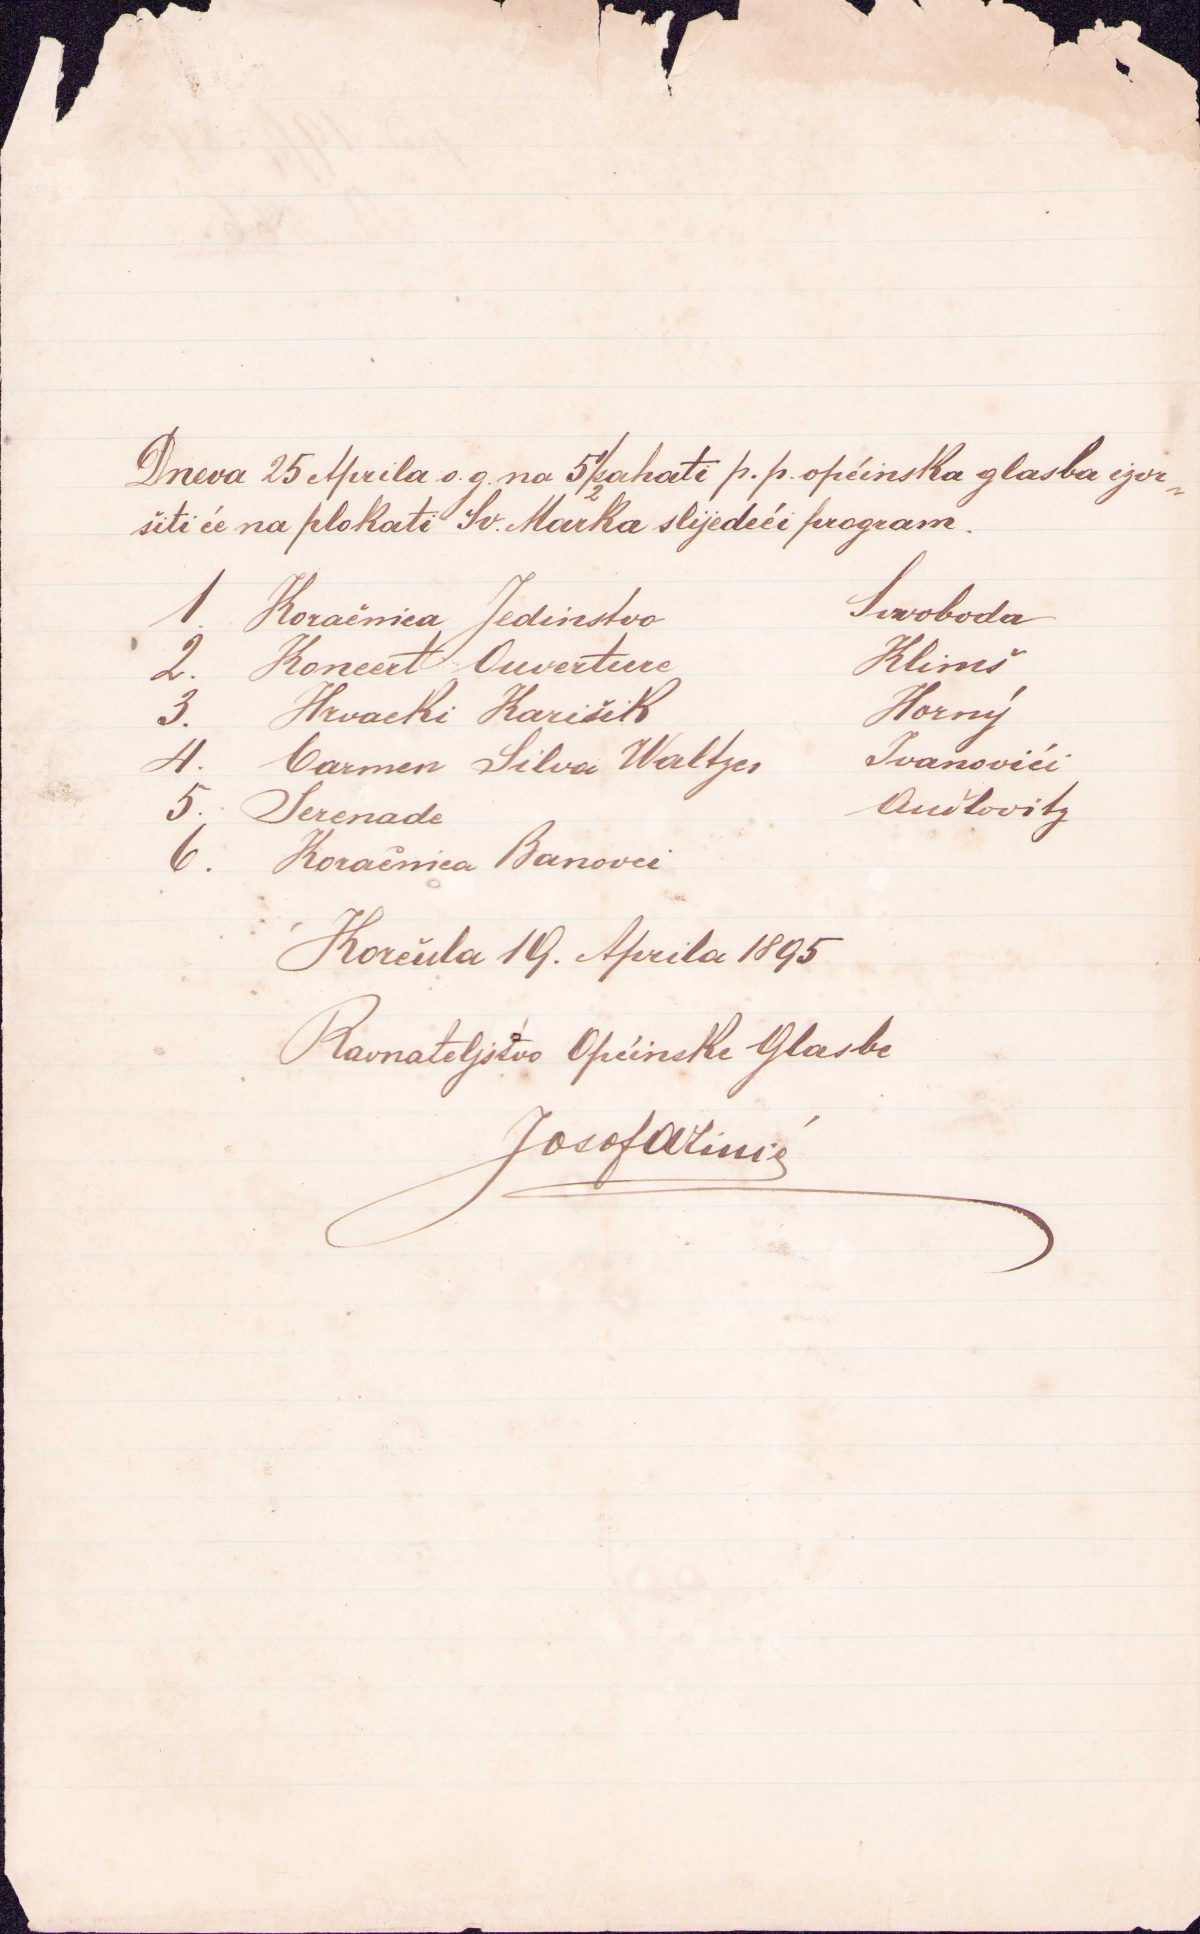 Dneva 25 Aprila o. g. na 5 1/2 sahati p. p. općinska glasba izvr=
šiti će na plokati Sv. Marka slijedeći program.
1. Koračnica Jedinstvo Svoboda
2. Koncert Ouverture Klimš
3. Hrvacki Karišik Horný
4. Carmen Silva Waltzer Ivanovići
5. Serenade
6. Koračnica Banovci
Korčula 19. Aprila 1895
Ravnateljstvo Općinske Glasbe
Josof